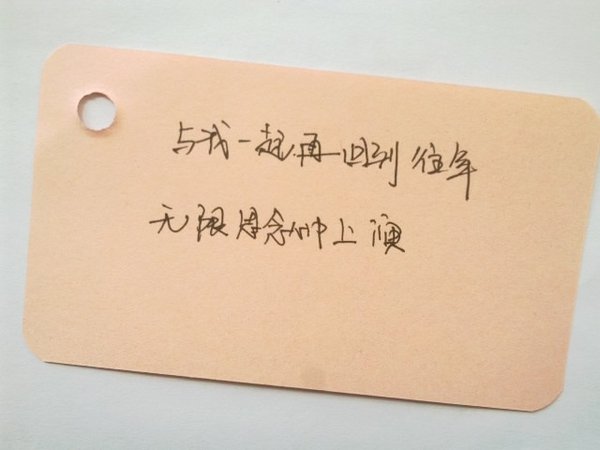 与我一起再回到往年
无限思念心中上演